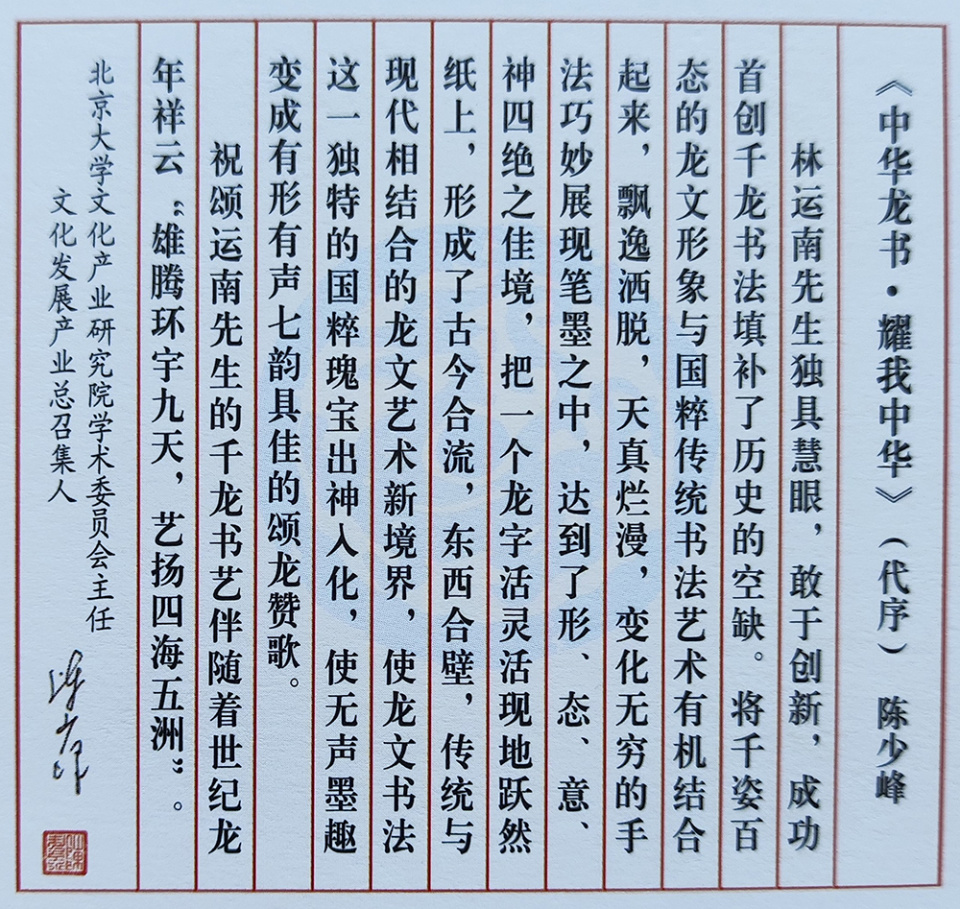 《中华龙书·耀我中华》（代序） 陈少峰
林运南先生独具慧眼，敢于创新，成功
首创千龙书法填补了历史的空缺。将千姿百
态的龙文形象与国粹传统书法艺术有机结合
起来，飘逸洒脱，天真烂漫，变化无穷的手
法巧妙展现笔墨之中，达到了形、态、意、
神四绝之佳境，把一个龙字活灵活现地跃然
纸上，形成了古今合流，东西合壁，传统与
现代相结合的龙文艺术新境界，使龙文书法
这一独特的国粹瑰宝出神入化，使无声墨趣
变成有形有声七韵具佳的颂龙赞歌。
祝颂运南先生的千龙书艺伴随着世纪龙
年祥云“雄腾环宇九天，艺扬四海五洲”。
北京大学文化产业研究院学术委员会主任
文化发展产业总召集人
陈少峰